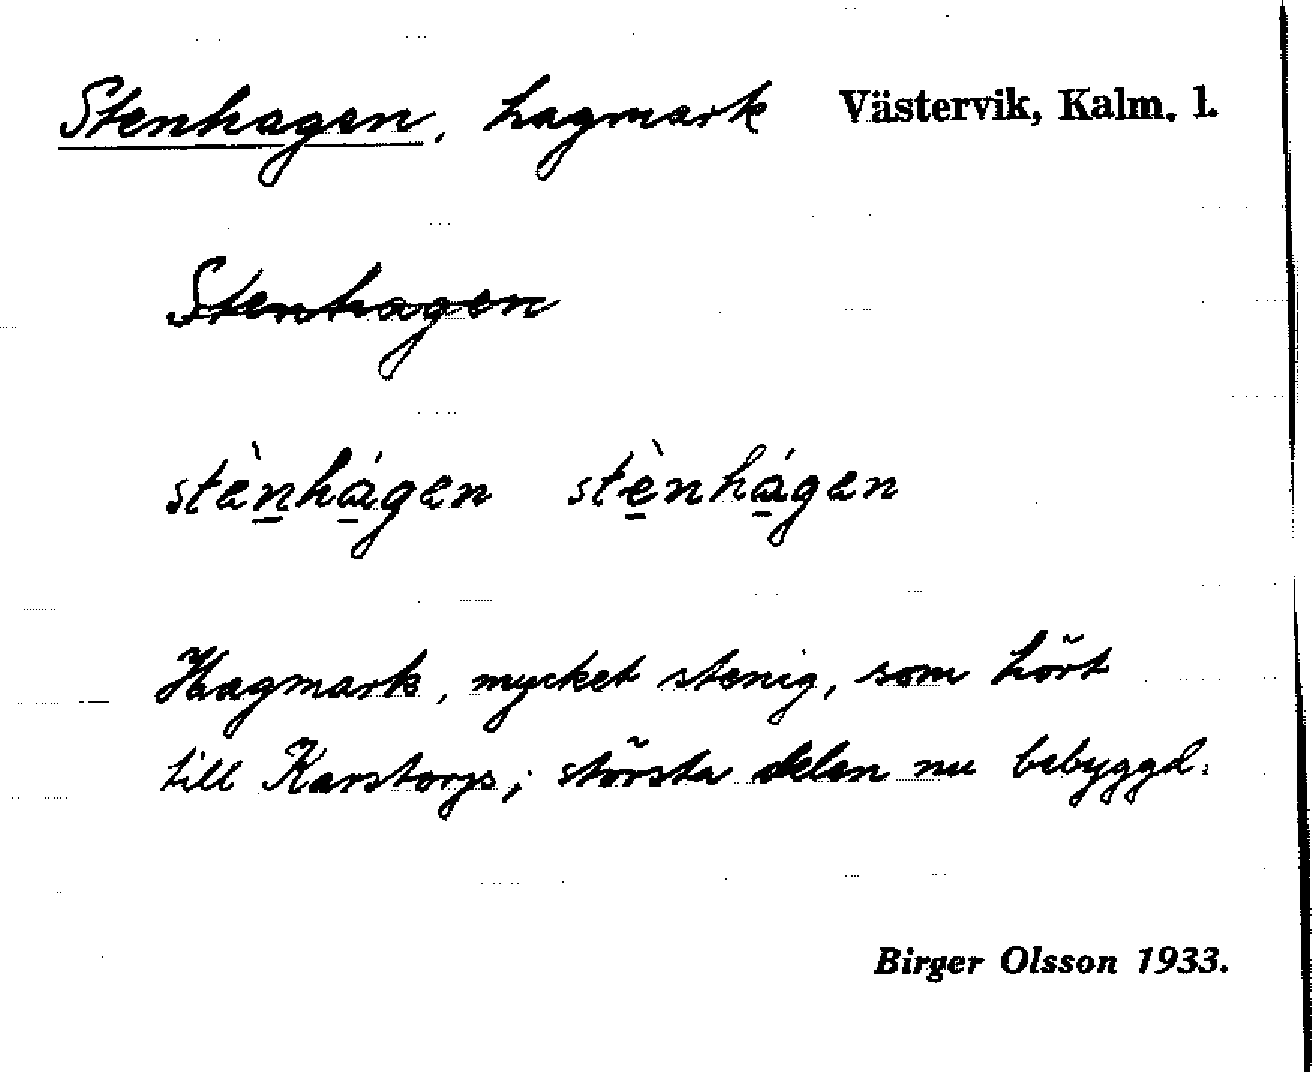 Stenhagen, hagmark Västervik, Kalm. l.
Stenhagen
stènhágen stènhágen
Hagmark, mycket stenig, som hört
till Karstorp; största delen nu bebyggd.
Birger Olsson 1933.